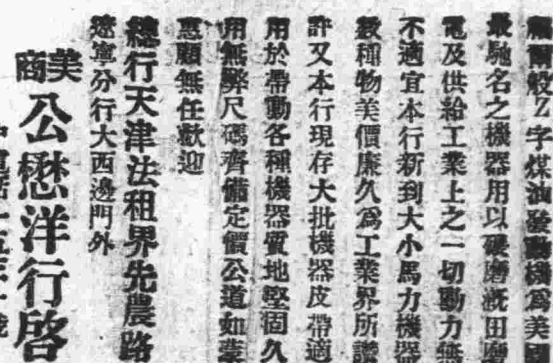 爾般Z字煤油發動機爲美國
最馳名之機器用以碾磨漑田磨
電及供給工業上之一切動力無
不適宜本行新到大小馬力機器
數種物美價廉久爲工業界所讚
許又本行現存大批機器皮帶適
用於帶動各種機器質地堅固久
用無弊尺碼齊備定價公道如蒙
惠顧無任歡迎
總行天津法租界先農路
遼寧分行大西邊門外
美商
公懋洋行啓